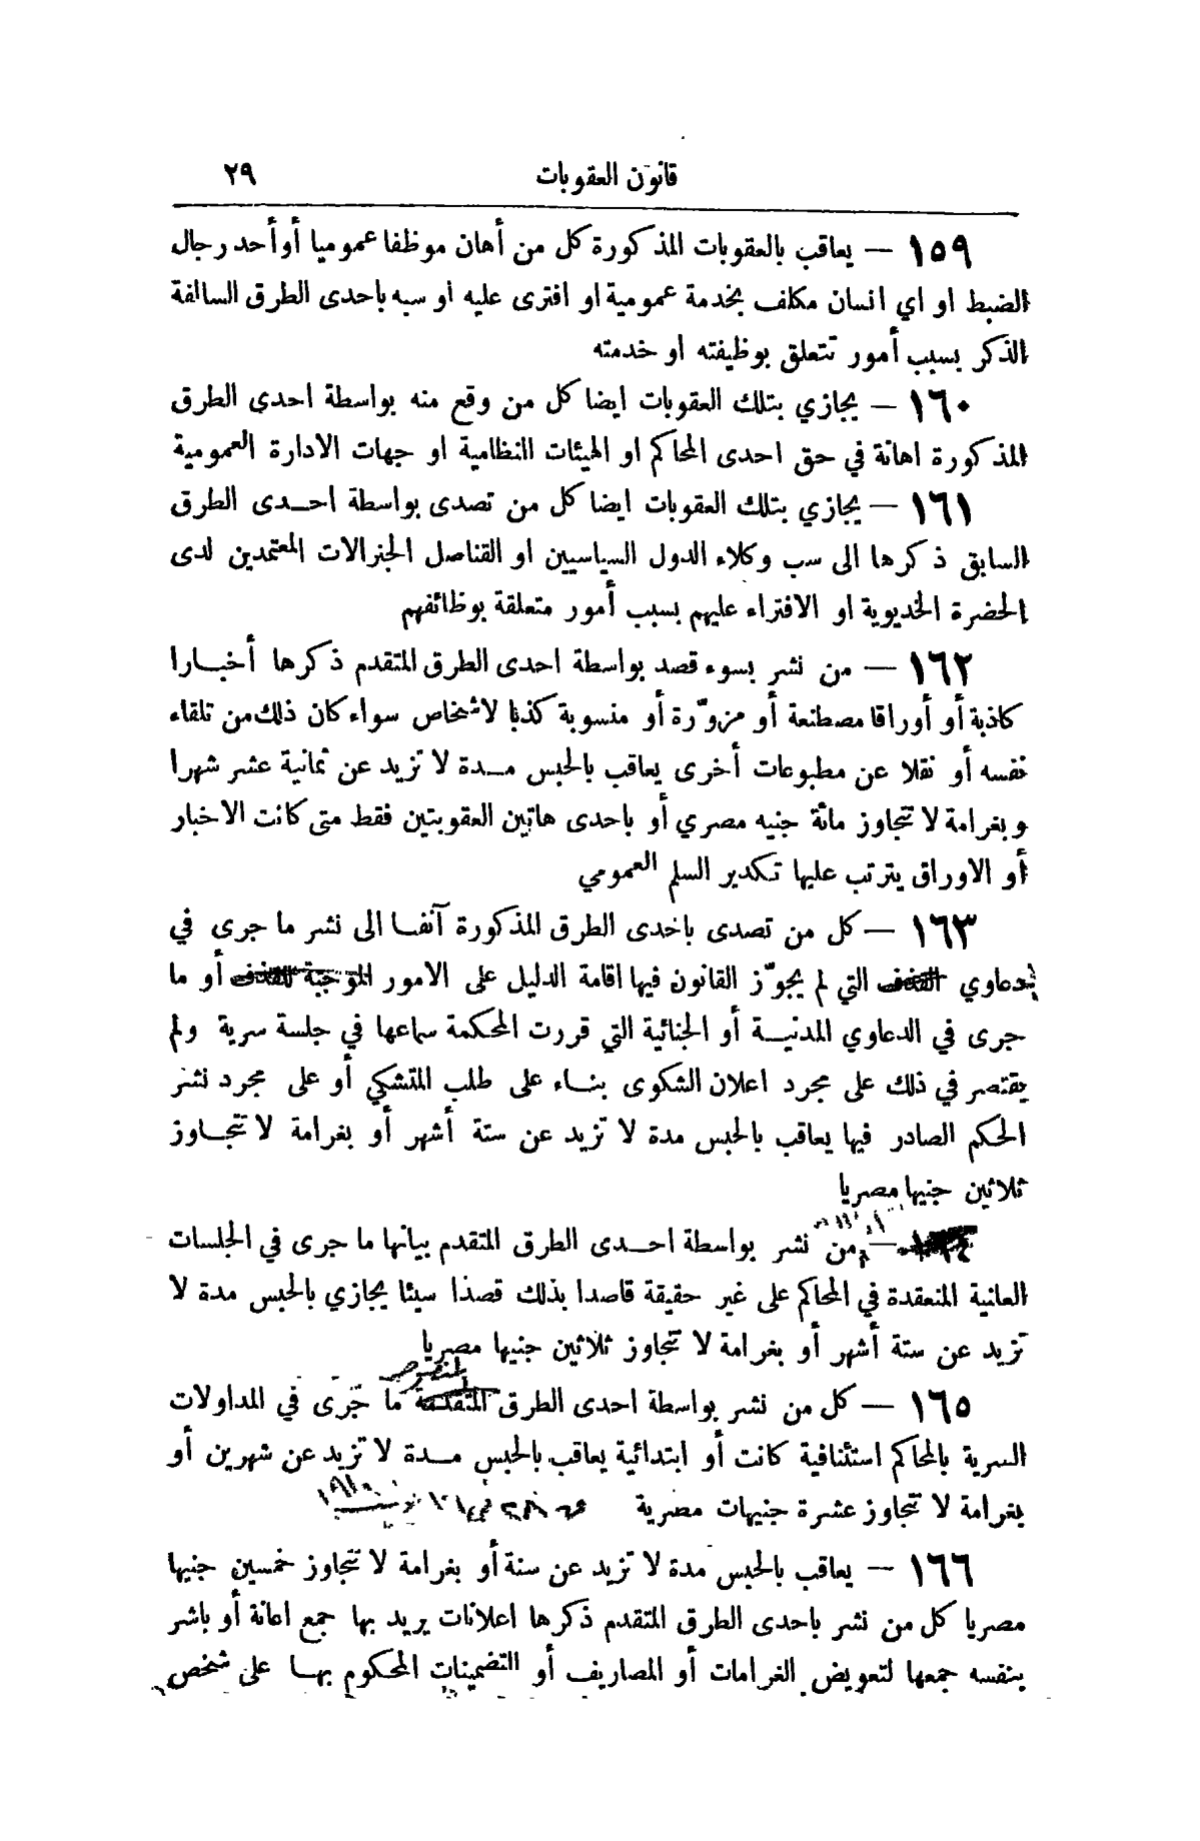 قانون العقوبات ٢٩
١٥٩ — يعاقب بالعقوبات المذكورة كل من أهان موظفا عموميا أو أحد رجال
الضبط او اي انسان مكلف بخدمة عمومية او افترى عليه او سبه باحدى الطرق السالفة
الذكر بسبب أمور تتعلق بوظيفته او خدمته
١٦٠ — يجازي بتلك العقوبات ايضا كل من وقع منه بواسطة احدى الطرق
المذكورة اهانة في حق احدى المحاكم او الهيئات النظامية او جهات الادارة العمومية
١٦١ — يجازي بتلك العقوبات ايضا كل من تصدى بواسطة احدى الطرق
السابق ذكرها الى سب وكلاء الدول السياسيين او القناصل الجنرالات المعتمدين لدى
الحضرة الخديوية او الافتراء عليهم بسبب أمور متعلقة بوظائفهم
١٦٢ — من نشر بسوء قصد بواسطة احدى الطرق المتقدم ذكرها أخبارا
كاذبة أو أوراقا مصطنعة أو مزوّرة أو منسوبة كذبا لاشخاص سواء كان ذلك من تلقاء
نفسه أو نقلا عن مطبوعات أخرى يعاقب بالحبس مدة لا تزيد عن ثمانية عشر شهرا
وبغرامة لا تتجاوز مائة جنيه مصري أو باحدى هاتين العقوبتين فقط متى كانت الاخبار
أو الاوراق يترتب عليها تكدير السلم العمومي
١٦٣ — كل من تصدى باحدى الطرق المذكورة آنفا الى نشر ما جرى في
دعاوي القذف التي لم يجوّز القانون فيها اقامة الدليل على الامور الموجبة للقذف أو ما
جرى في الدعاوي المدنية أو الجنائية التي قررت المحكمة سماعها في جلسة سرية ولم
يقتصر في ذلك على مجرد اعلان الشكوى بناء على طلب المتشكي أو على مجرد نشر
الحكم الصادر فيها يعاقب بالحبس مدة لا تزيد عن ستة أشهر أو بغرامة لا تتجاوز
ثلاثين جنيها مصريا
١٦٤ — من نشر بواسطة احدى الطرق المتقدم بيانها ما جرى في الجلسات
العلنية المنعقدة في المحاكم على غير حقيقة قاصدا بذلك قصدا سيئا يجازي بالحبس مدة لا
تزيد عن ستة أشهر أو بغرامة لا تتجاوز ثلاثين جنيها مصريا
١٦٥ — كل من نشر بواسطة احدى الطرق المتقدمة ما جرى في المداولات
السرية بالمحاكم استئنافية كانت أو ابتدائية يعاقب بالحبس مدة لا تزيد عن شهرين أو
بغرامة لا تتجاوز عشرة جنيهات مصرية
١٦٦ — يعاقب بالحبس مدة لا تزيد عن سنة أو بغرامة لا تتجاوز خمسين جنيها
مصريا كل من نشر باحدى الطرق المتقدم ذكرها اعلانات يريد بها جمع اعانة أو باشر
بنفسه جمعها لتعويض الغرامات أو المصاريف أو التضمينات المحكوم بها على شخص